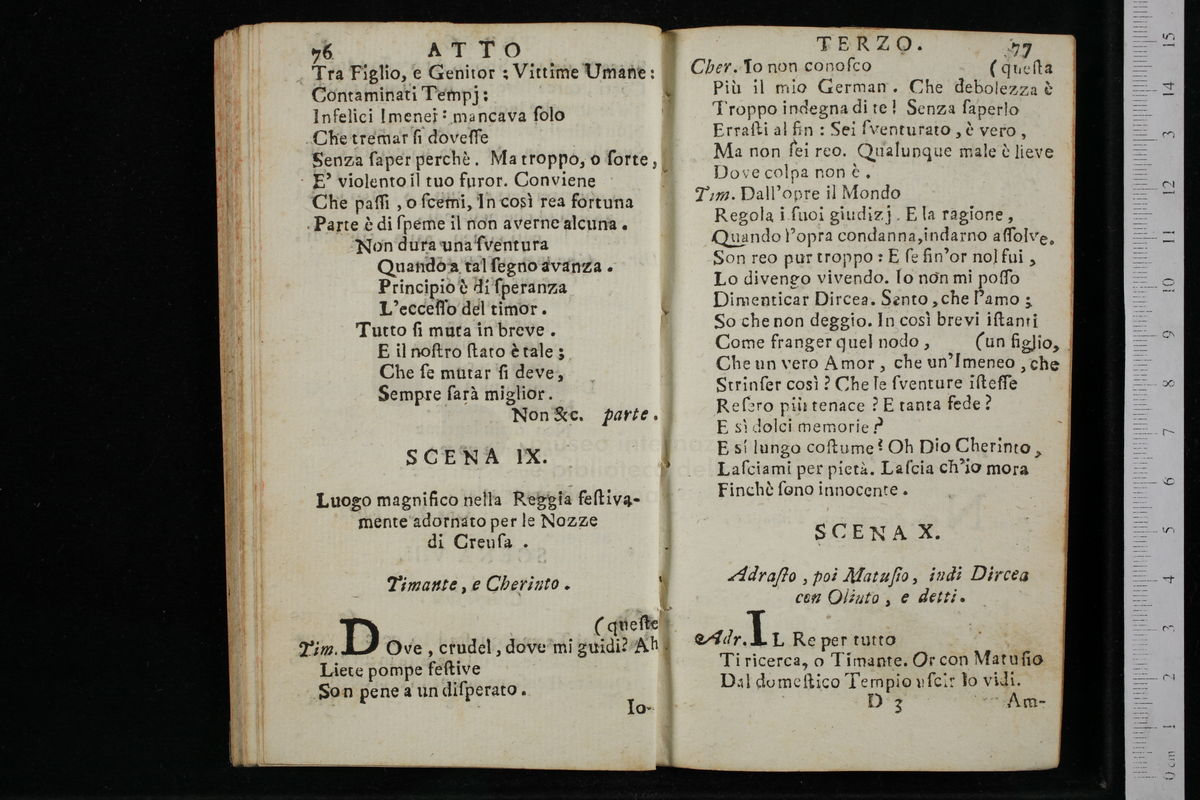 76 ATTO
Tra Figlio, e Genitor ; Vittime Umane:
Contaminati Tempj:
Infelici Imenei: mancava ſolo
Che tremar ſi doveſſe
Senza ſaper perchè. Ma troppo, o ſorte,
E' violento il tuo furor. Conviene
Che paſſi, o ſcemi, In così rea fortuna
Parte è di ſpeme il non averne alcuna.
Non dura una ſventura
Quando a tal ſegno avanza.
Principio è di ſperanza
L'ecceſſo del timor.
Tutto ſi muta in breve.
E il noſtro ſtato è tale;
Che ſe mutar ſi deve,
Sempre ſarà miglior.
Non &c. parte.
SCENA IX.
Luogo magnifico nella Reggia feſtiva-
mente adornato per le Nozze
di Creuſa.
Timante, e Cherinto.
(queſte
Tim. DOve, crudel, dove mi guidi? Ah
Liete pompe feſtive
Son pene a un diſperato.
Io-
TERZO. 77
Cher. Io non conoſco (queſta
Più il mio German. Che debolezza è
Troppo indegna di te! Senza ſaperlo
Erraſti al fin : Sei ſventurato, è vero,
Ma non ſei reo. Qualunque male è lieve
Dove colpa non è.
Tim. Dall'opre il Mondo
Regola i ſuoi giudizj. E la ragione,
Quando l'opra condanna, indarno aſſolve.
Son reo pur troppo: E ſe fin'or nol fui,
Lo divengo vivendo. Io non mi poſſo
Dimenticar Dircea. Sento, che l'amo;
So che non deggio. In così brevi iſtanti
Come franger quel nodo, (un figlio,
Che un vero Amor, che un'Imeneo, che
Strinſer così? Che le ſventure iſteſſe
Reſero più tenace? E tanta fede?
E sì dolci memorie?
E sí lungo coſtume? Oh Dio Cherinto,
Laſciami per pietà. Laſcia ch'io mora
Finchè ſono innocente.
SCENA X.
Adraſto, poi Matuſio, indi Dircea
con Olinto, e detti.
Adr. IL Re per tutto
Ti ricerca, o Timante. Or con Matuſio
Dal domeſtico Tempio uſcir lo vidi.
D 3 Am-